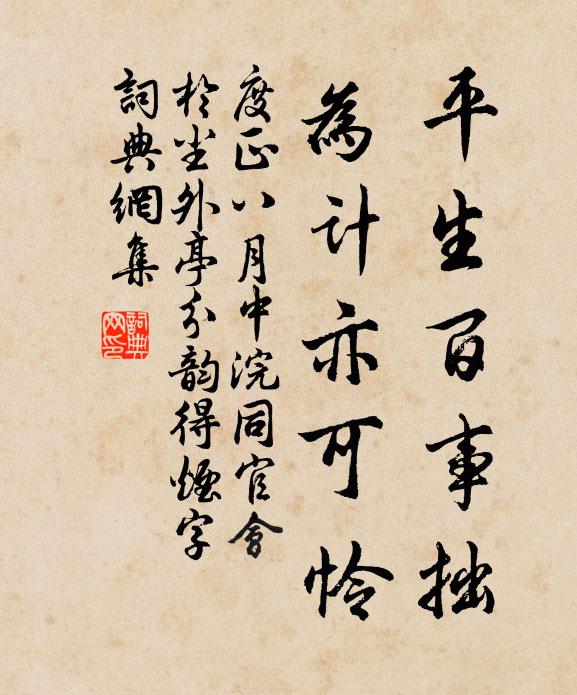 平生百事拙
為計亦可憐
度正八月中浣同官會
於坐外亭分韵得煙字
詞典網集
詞典網印